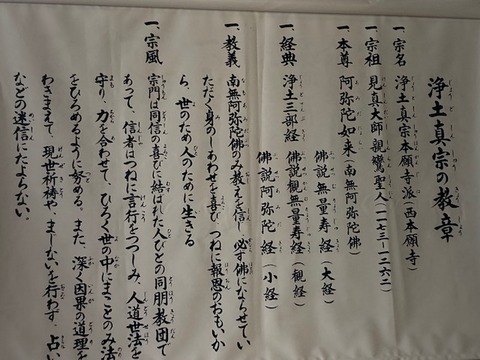 浄土真宗の教章
一、宗名　浄土真宗本願寺派(西本願寺)
一、宗祖　見真大師 親鸞聖人(一一七三ー一二六二)
一、本尊　阿弥陀如来(南無阿弥陀佛)
一、経典　浄土三部経　佛説無量寿経(大経)
佛説観無量寿経(観経)
佛説阿弥陀経(小経)
一、教義　南無阿弥陀佛のみ教えを信じ、必ず佛にならせてい
ただく身のしあわせを喜び、つねに報恩のおもいか
ら、世のため人のために生きる
一、宗風　宗門は同信の喜びに結ばれた人びとの同朋教団で
あって、信者はつねに言行をつつしみ、人道世法を
守り、力を合わせて、ひろく世の中にまことのみ法
をひろめるように努める。また、深く因果の道理を
わきまえて、現世祈祷や、まじないを行わず、占い
などの迷信にたよらない。